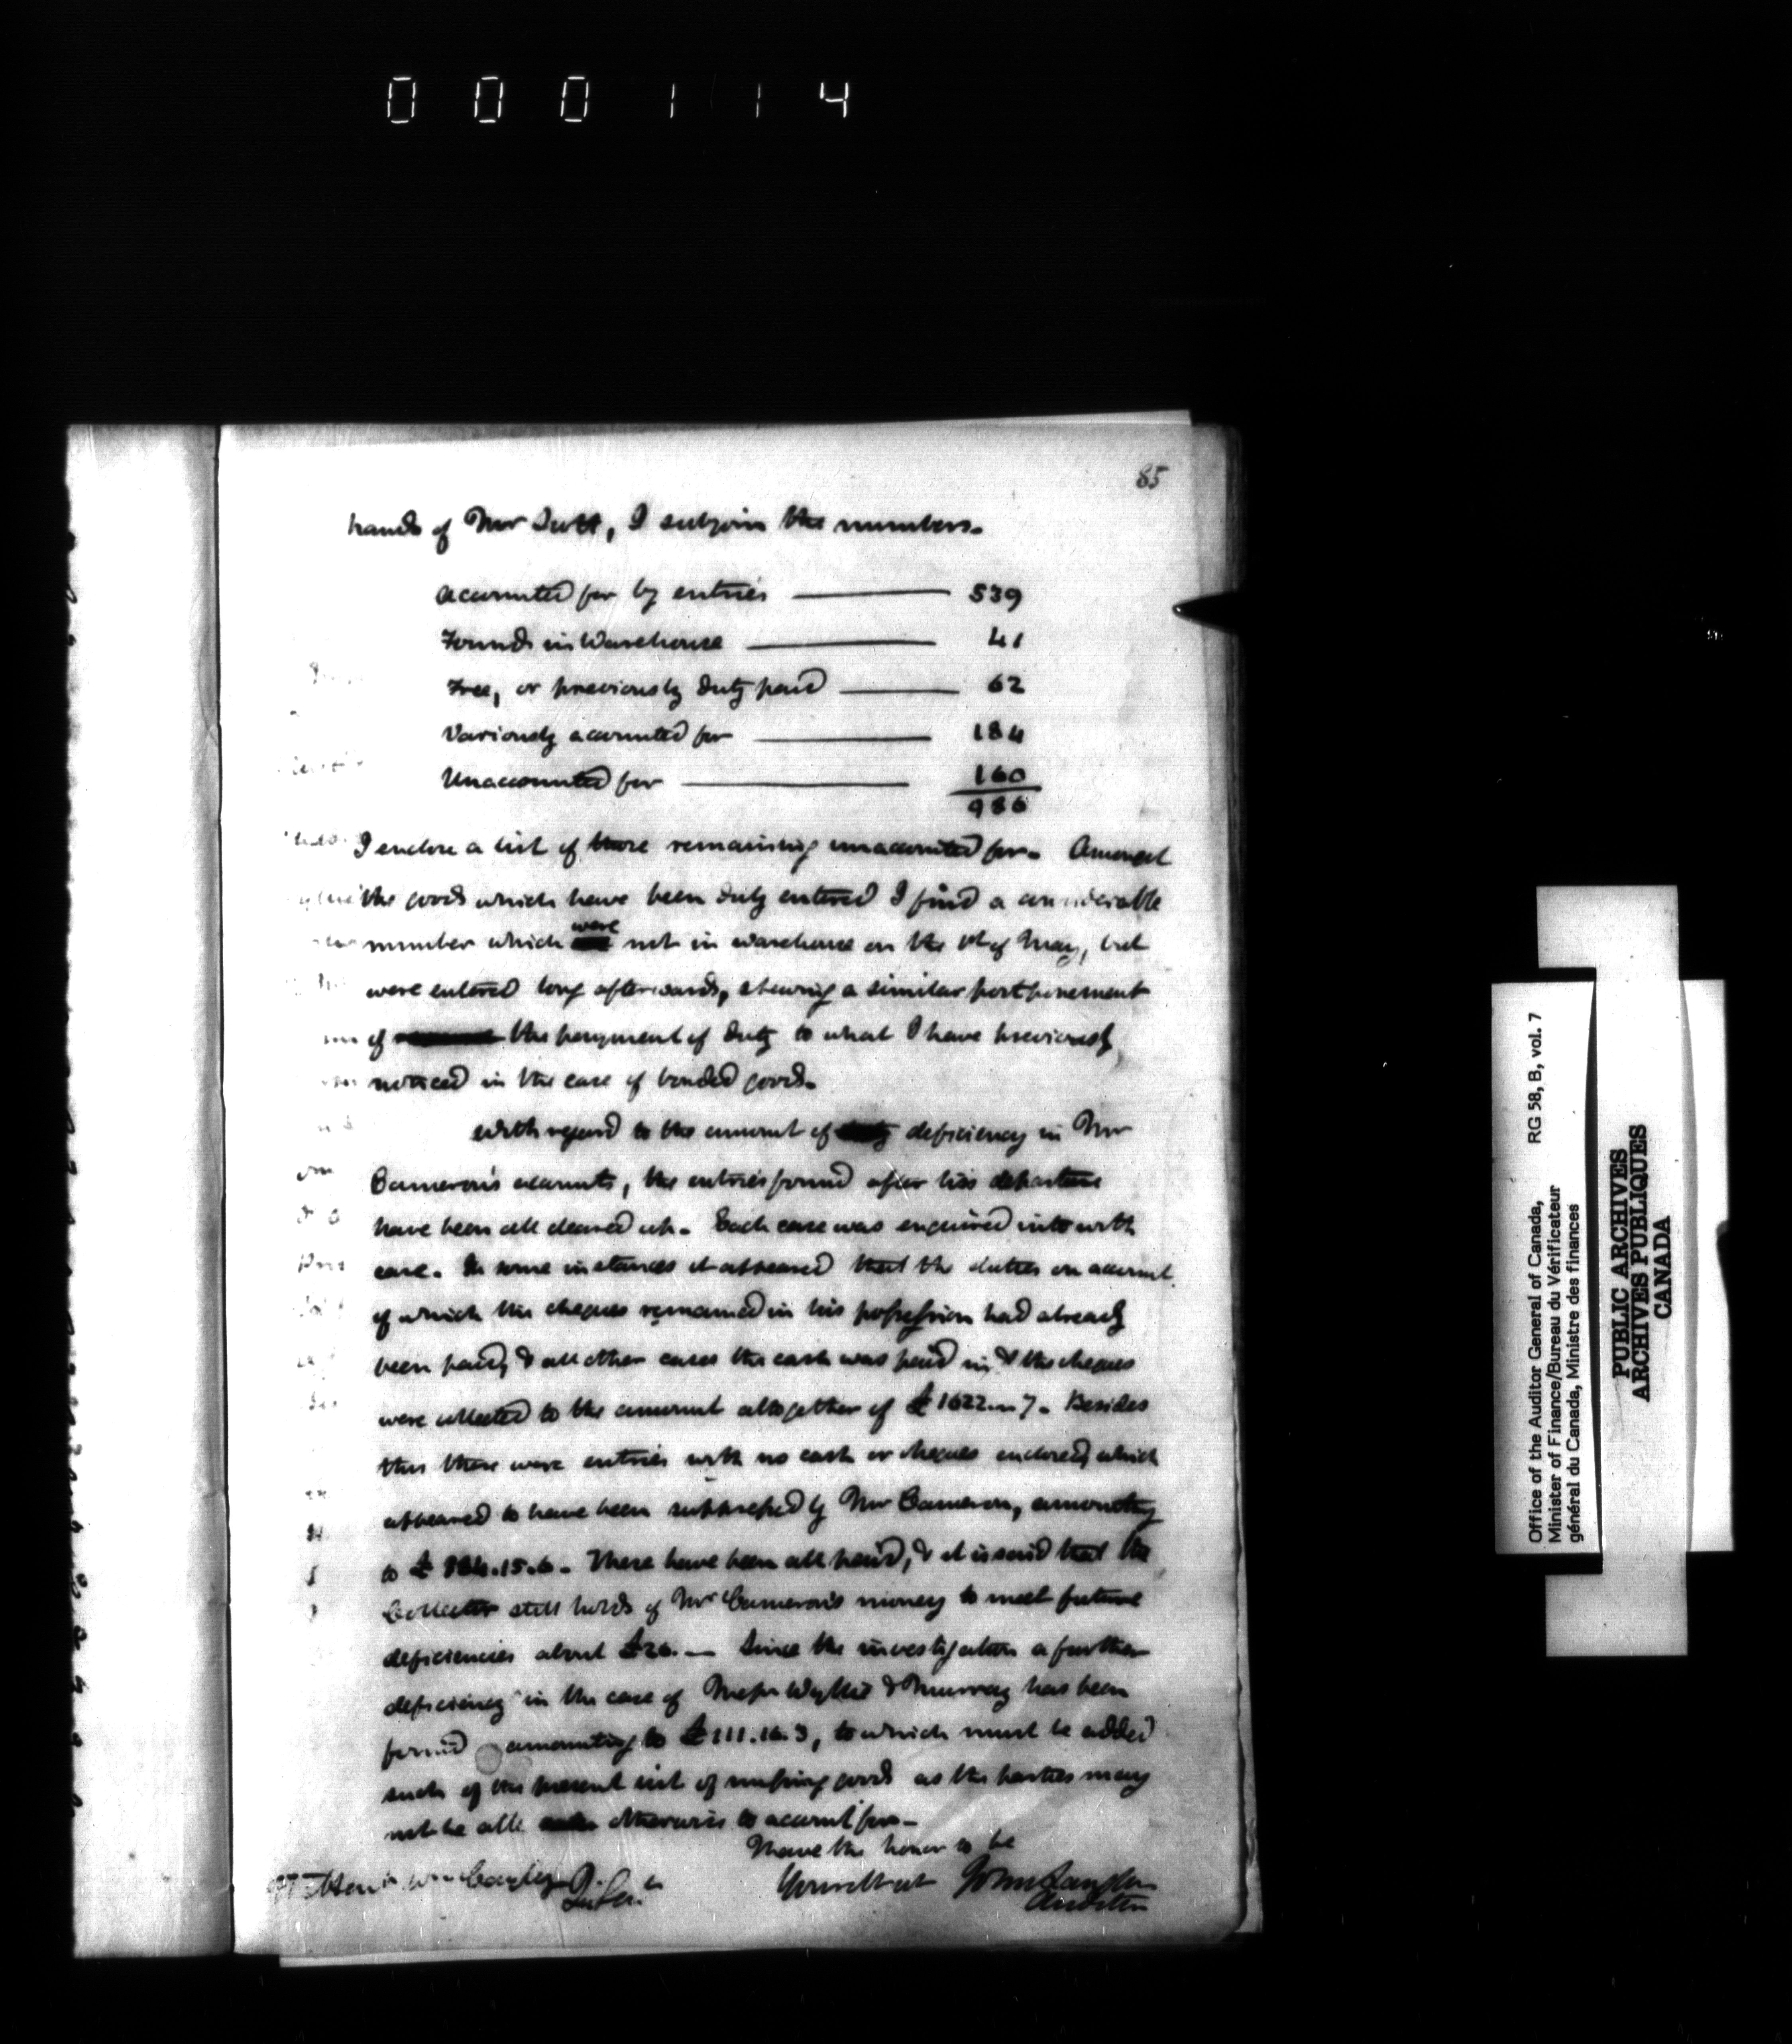 000114
85
hands of Mr Scott, I subjoin the numbers.
accounted for by entries 539
Found in Warehouse 41
Free, or previously duty paid 62
Variously accounted for 184
Unaccounted for 160
986
I enclose a list of those remaining unaccounted for. Amongst
the goods which have been duly entered I find a considerable
were
number which not in warehouse on the 1st of May, but
were entered long afterwards, shewing a similar postponement
of the payment of duty to what I have previously
noticed in the case of bonded goods.
With regard to the amount of deficiency in Mr
Cameron's accounts, the entries found after his departure
have been all cleared up. Each case was enquired into with
care. In some instances it appeared that the duties on account
of which the cheques remained in his possession had already
been paid, & all other cases the cash was paid in & the cheques
were collected to the amount altogether of £1622 7. Besides
this there were entries with no cash or cheques enclosed, which
appeared to have been suppressed by Mr Cameron, amounting
to £ .15.6. These have been all paid, & it is said that the
Collector still holds of Mr Cameron's money to meet future
deficiencies about £26. — Since the investigation a further
deficiency in the case of Messrs Wyllie & Murray has been
found amounting to £111.16.3, to which must be added
such of the present list of missing goods as the parties may
not be able otherwise to account for —
I have the honor to be
Hon Wm Cayley
Your obt st John Langton
Auditor
Office of the Auditor General of Canada, RG 58, B, vol. 7
Minister of Finance/Bureau du Vérificateur
général du Canada, Ministre des finances
PUBLIC ARCHIVES
ARCHIVES PUBLIQUES
CANADA